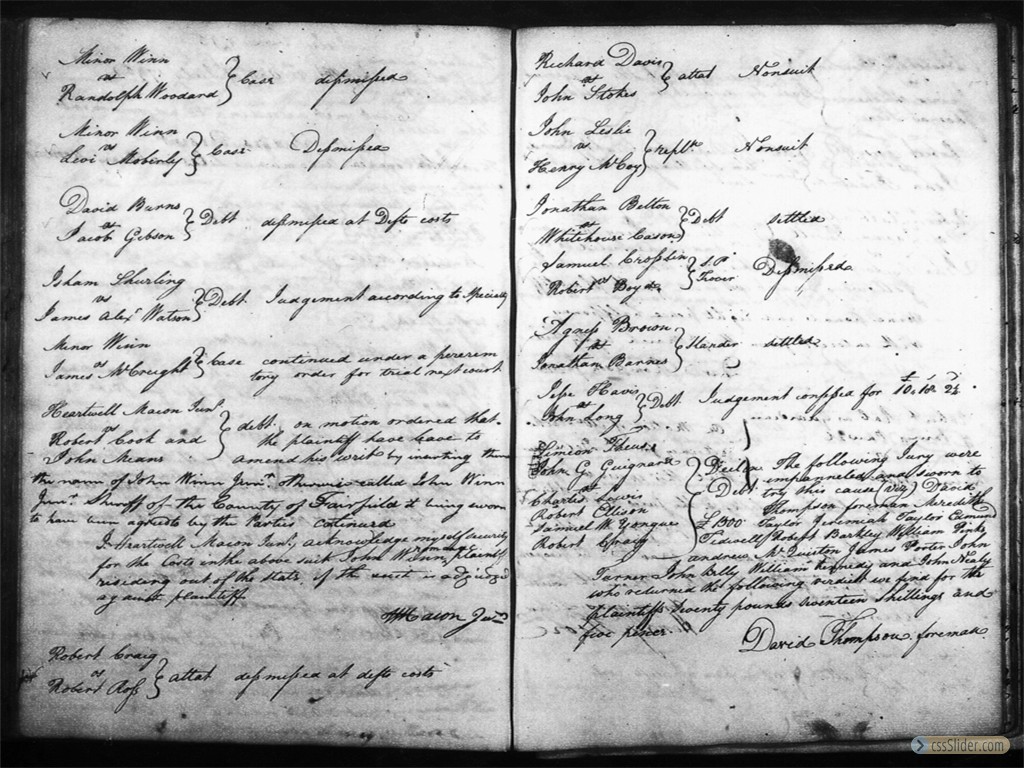 Minor Winn
vs
Randolph Woodard } Case dismissed
Minor Winn
vs
Levi Moberly } Case Dismissed
David Burns
vs
Jacob Gibson } Debt dismissed at Defts costs
Isham Shurling
vs
James Alexr Watson } Debt Judgement according to Specialty
Minor Winn
vs
James McCreight } Case continued under a perem
tory order for trial next court
Heartwell Macon Junr
vs
Robert Cook and
John Means } debt. on motion ordered that
the plaintiff have leave to
amend his writ by inserting
the name of John Winn Junr otherwise called John Winn
Junr Sheriff of the County of Fairfield & being sworn
to have been agreed to by the Parties continued
I Hartwell Macon Junr acknowledge myself security
for the Costs in the above suit John Winn plaintiff
residing out of the state, if the suit is adjudged
against plaintiff
HMacon Junr
Robert Craig
vs
Robert Ross } attat dismissed at defts costs
Richard Davis
vs
John Stokes } attat Nonsuit
John Leslie
vs
Henry McCoy } Nonsuit
Jonathan Belton
vs
Whitehouse Cason } Debt settled
Samuel Crosslin
vs
Robert Boyd } S.P Trover Dismissed
Agness Brown
vs
Jonathan Barnes } Slander settled
Jesse Havis
vs
John Long } Debt Judgement confessed for £10.18.2½
Simeon Theus
John G. Guignard
vs
Charles Lewis
Robert Ellison
Samuel W. Yongue
Robert Craig } Declan
Debt
£1300
The following Jury were
empanneled and sworn to
try this cause (viz) David
Thompson foreman Meredith
Taylor Jeremiah Taylor
Tidwell Robert Barkley William
andrew McQuiston James Porter John
Turner John Kelly William Kennedy and John Nealy
who returned the following verdict we find for the
plaintiffs seventy pounds seventeen Shillings and
five pence
David Thompson foreman
cssSlider.com